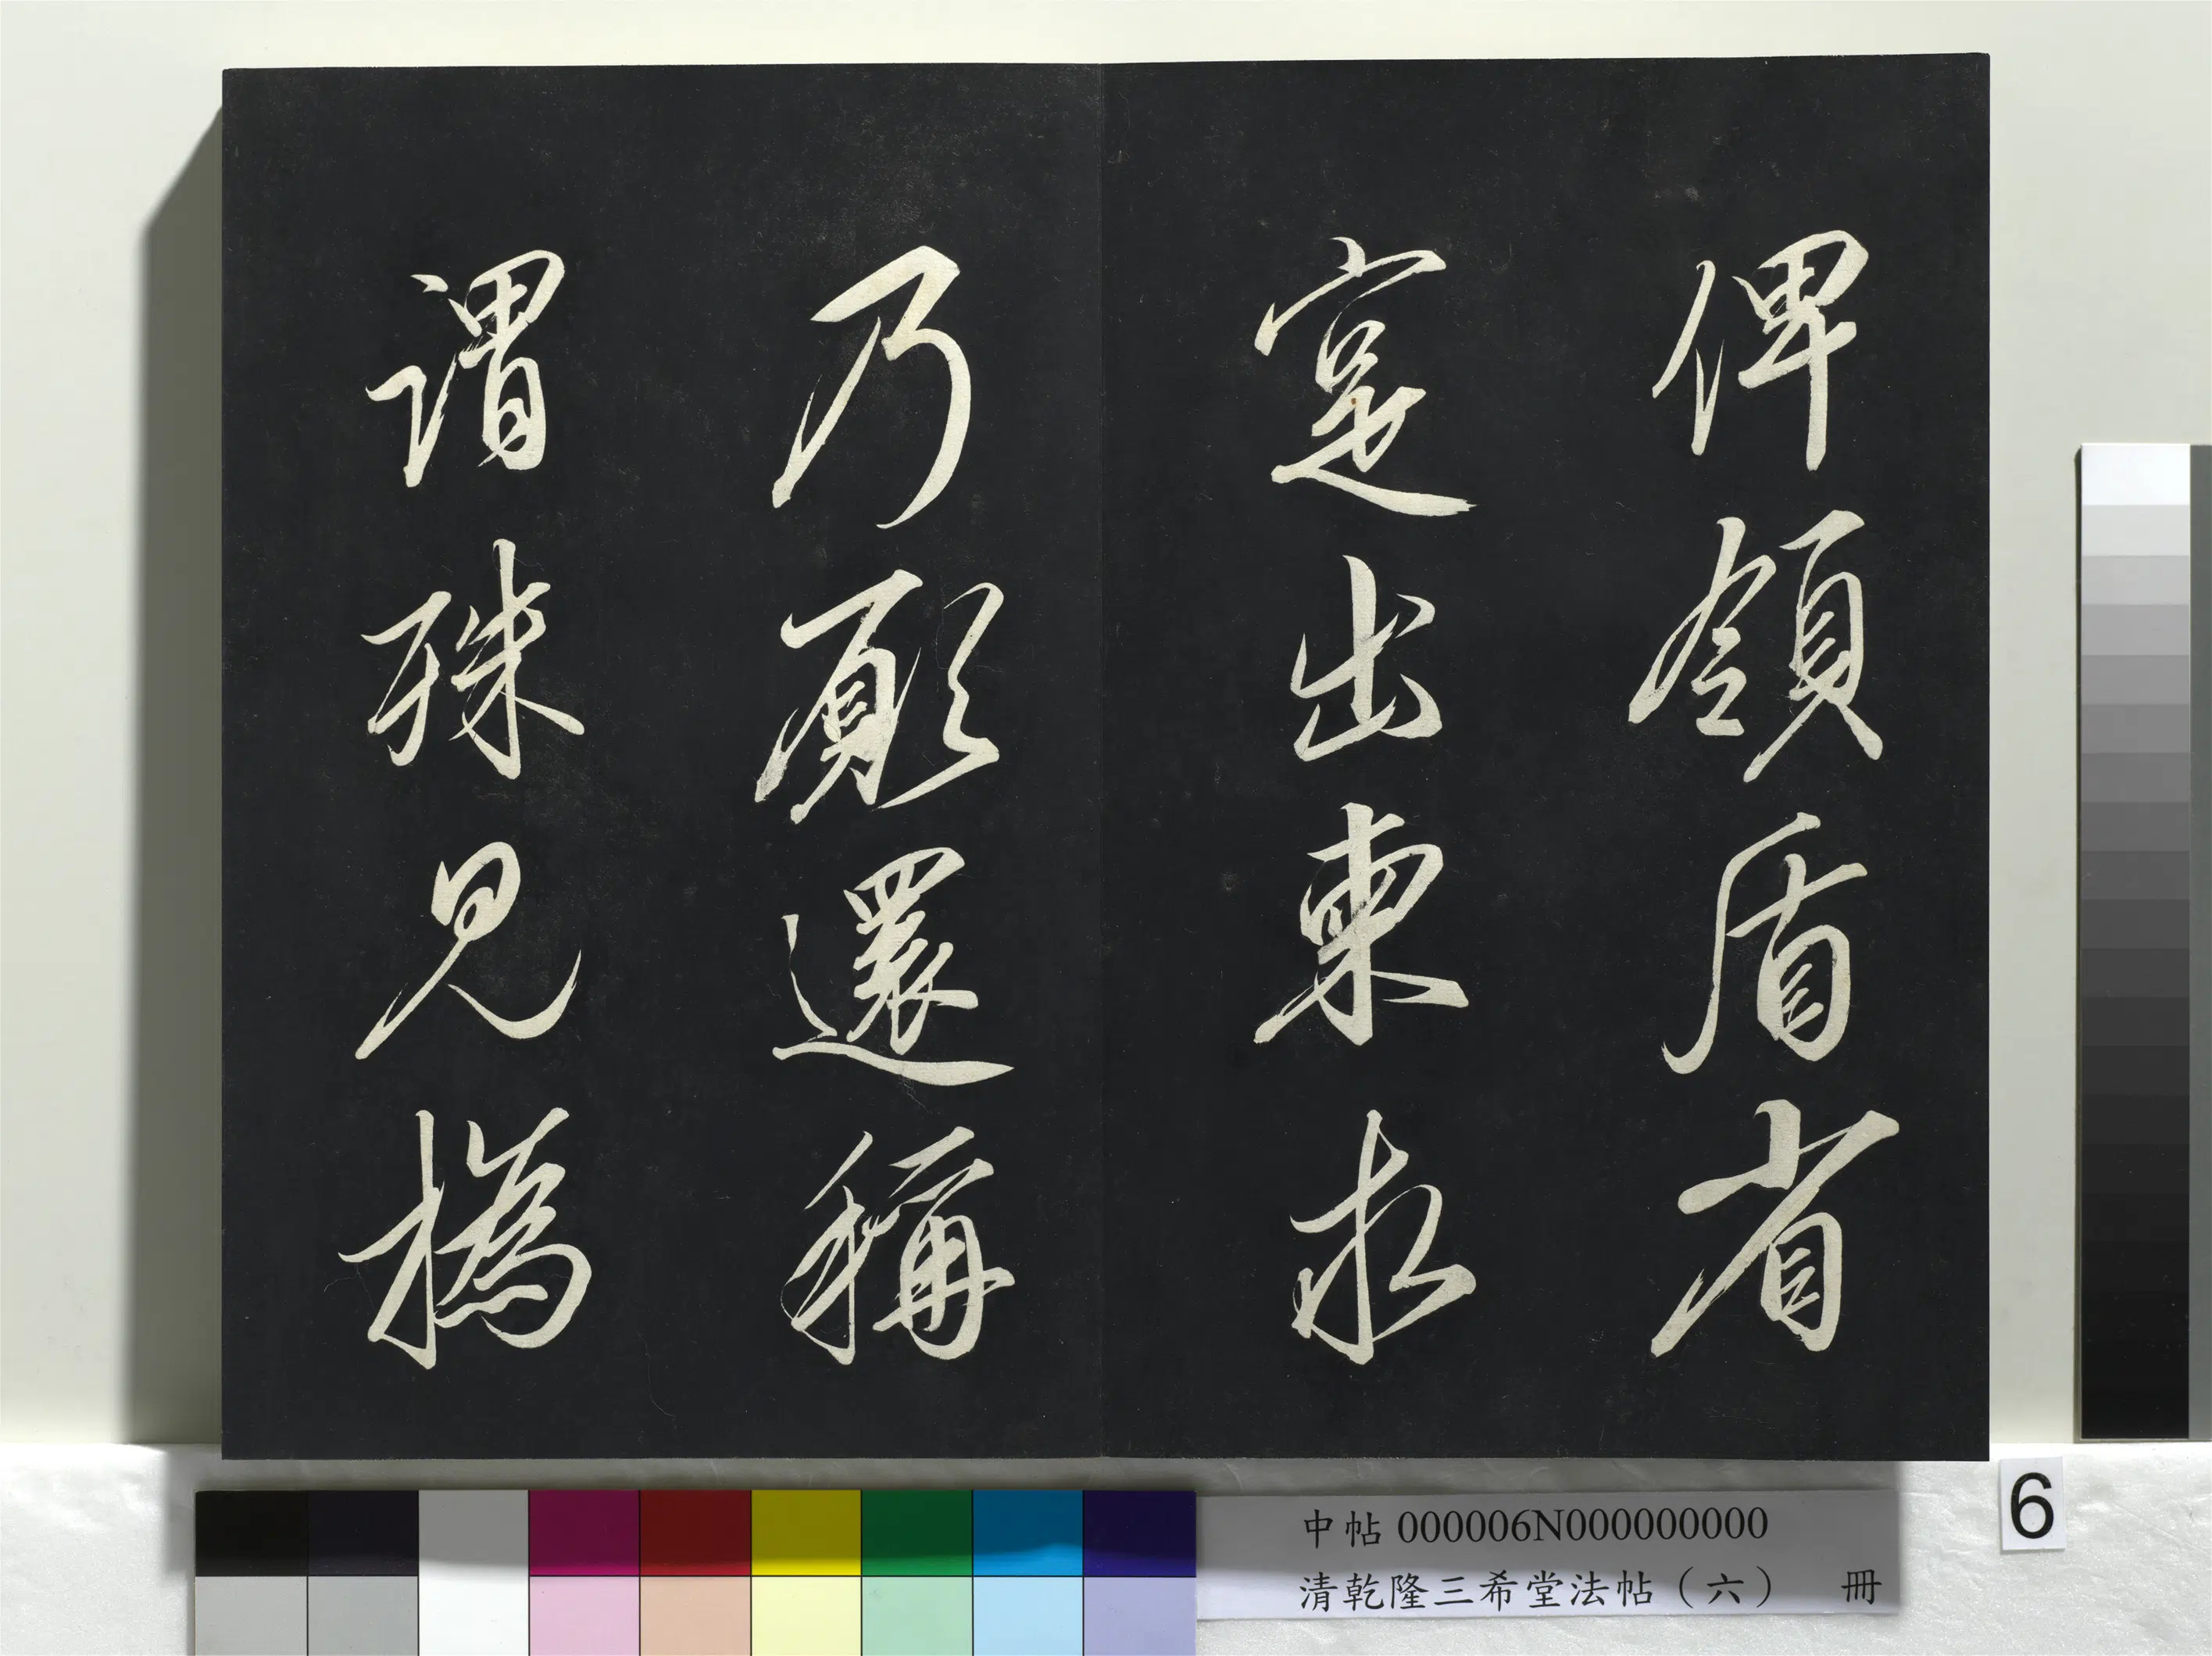 俾領盾省
寔出柬求
乃願還稱
謂殊見撝
中帖 000006N000000000
清乾隆三希堂法帖（六） 冊
6